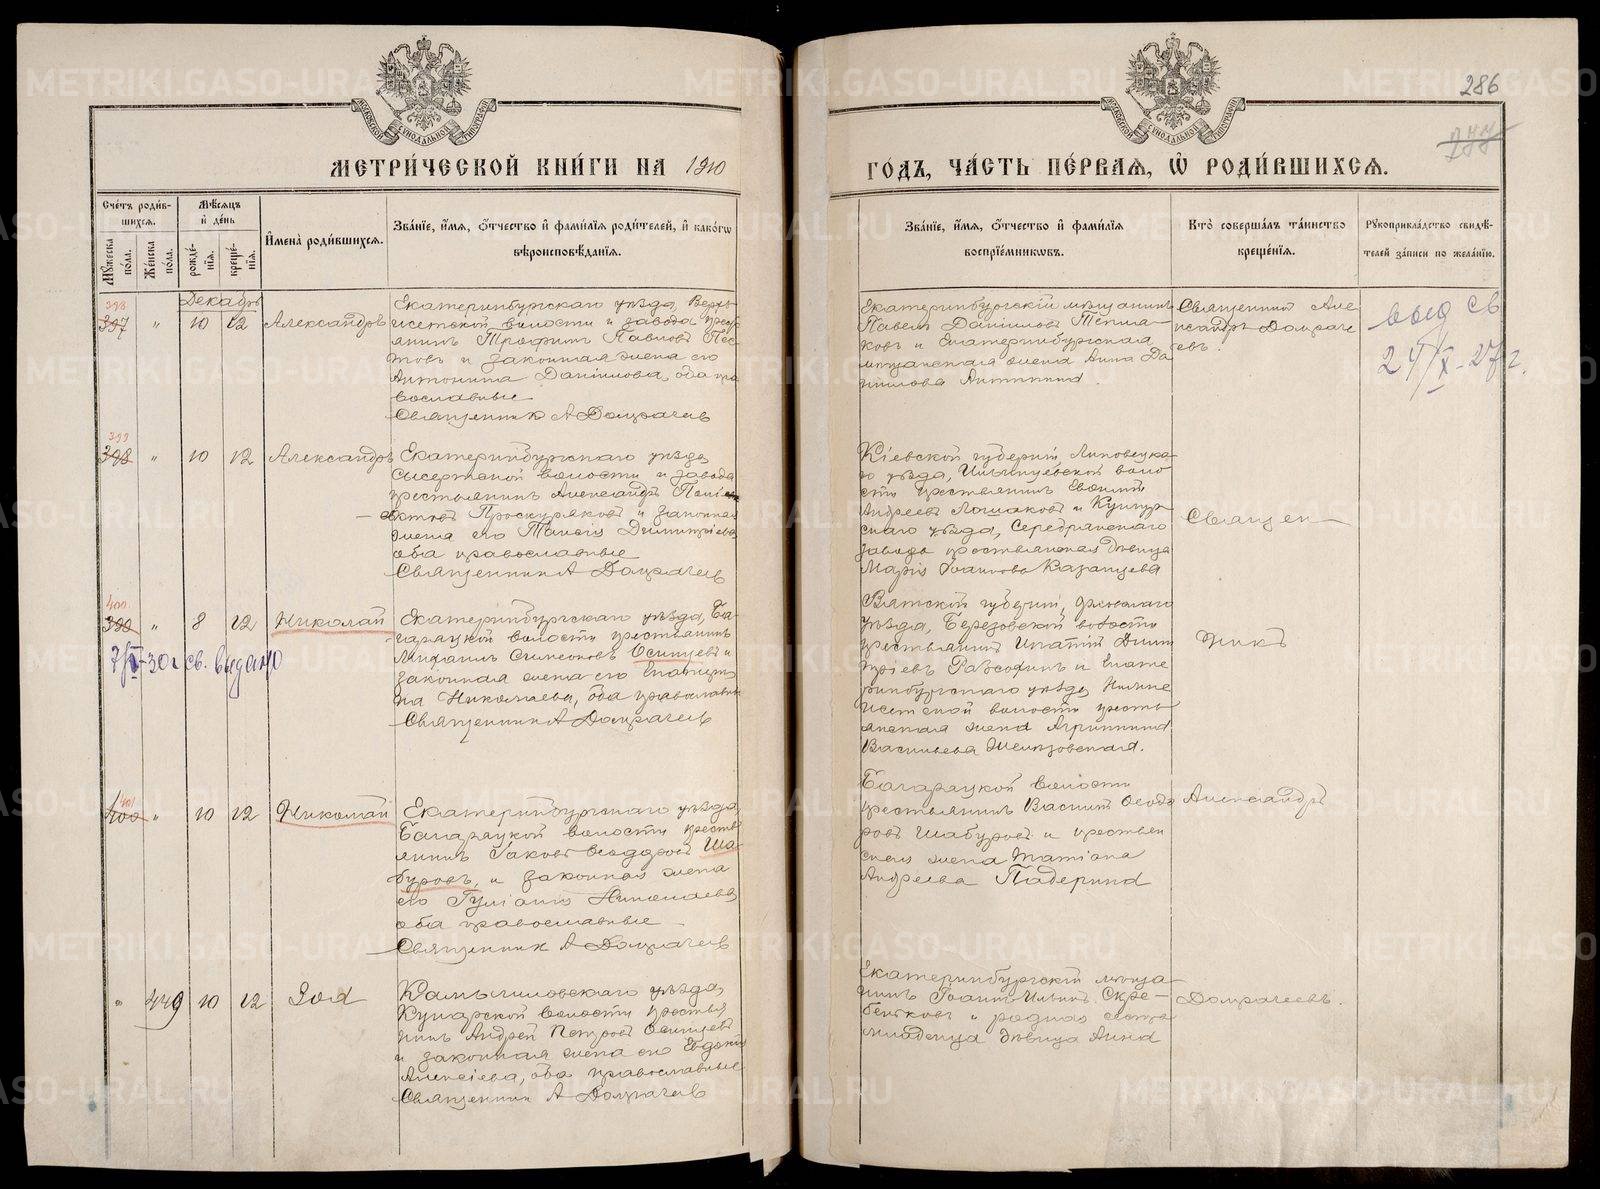 286
МЕТРИ́ЧЕСКОЙ КНИ́ГИ НА 1910
ГО́ДЪ, ЧА́СТЬ ПЕ́РВАЯ, Ѡ РОДИ́ВШИХСЯ.
Сче́тъ роди́в-
шихся.
Мѣ́сяцъ
и де́нь
Му́жеска
по́ла.
Же́нска
по́ла.
рожде́-
нія.
креще́-
нія.
И́мена роди́вшихся.
Зва́ніе, и́мя, о́тчество и фами́лія роди́телей, и како́гѡ
вѣроисповѣ́данія.
Зва́ніе, и́мя, о́тчество и фами́лія
воспріе́мниковъ.
Кто̀ соверша́лъ та́инство
креще́нія.
Рꙋкоприкла́дство свидѣ́-
телей за́писи по жела́нію.
Декабрь
398
397 " 10 12 Александръ
Екатеринбургскаго уѣзда, Верхъ-
исетской волости и завода кресть
янинъ Трофимъ Павловъ Пес-
товъ и законная жена его
Антонина Даніилова, оба пра
вославные
Священник А Домрачевъ
Екатеринбургскій мѣщанинъ
Павелъ Даніиловъ Тепля-
ковъ и Екатеринбургская
мѣщанская жена Анна Да
ніилова
Священникъ Але
ксандръ Домраче
евъ.
выд св
24/X-27 г.
399
398 " 10 12 Александръ
Екатеринбургскаго уѣзда,
Сысертской волости и завода
крестьянинъ Александръ
Проскуряковъ и законная
жена его Таисія Димитріева
оба православные
Священник А Домрачевъ
Кіевской губерніи Липовецка-
го уѣзда, волос
сти крестьянинъ Евѳимій
Андреевъ Лошаковъ и Кунгур-
скаго уѣзда, Серебрянскаго
завода крестьянская дѣвица
Марія Іоаннова Казанцева
Священ-
400
399 " 8 12 Николай
7/ -30 г св. выдано
Екатеринбургскаго уѣзда, Ба-
гарацкой волости крестьянинъ
Михаилъ Симеоновъ Осинцевъ и
законная жена его Екатери
на Николаева, оба православн
Священник А Домрачевъ
Вятской губерніи,
уѣзда, Березовской волости
крестьянинъ Игнатій Дими
тріевъ и Екате
ринбургскаго уѣзда, Нижне
исетской волости кресть
янская жена Агриппина
Васильева
никъ
401
400 " 10 12 Николай
Екатеринбургскаго уѣзда,
Багарацкой волости кресть
янинъ Іаковъ Ѳеодоровъ Ша
буровъ, и законная жена
его Іуліанія Николаева,
оба православные
Священник А Домрачевъ
Багарацкой волости
крестьянинъ Василій Ѳеодо
ровъ Шабуровъ и крестьян
ская жена Татіана
Андреева Падерина
Александръ
" 449 10 12 Зоя
Камышловскаго уѣзда,
Кунарской волости крестья
нинъ Андрей Петровъ Осинцевъ
и законная жена его Евдокія
Алексіева, оба православные
Священник А Домрачевъ
Екатеринбургскій мѣща
нинъ Іоаннъ Ильинъ Скре-
бенковъ и родная сестра
младенца дѣвица Анна
Домрачеевъ.